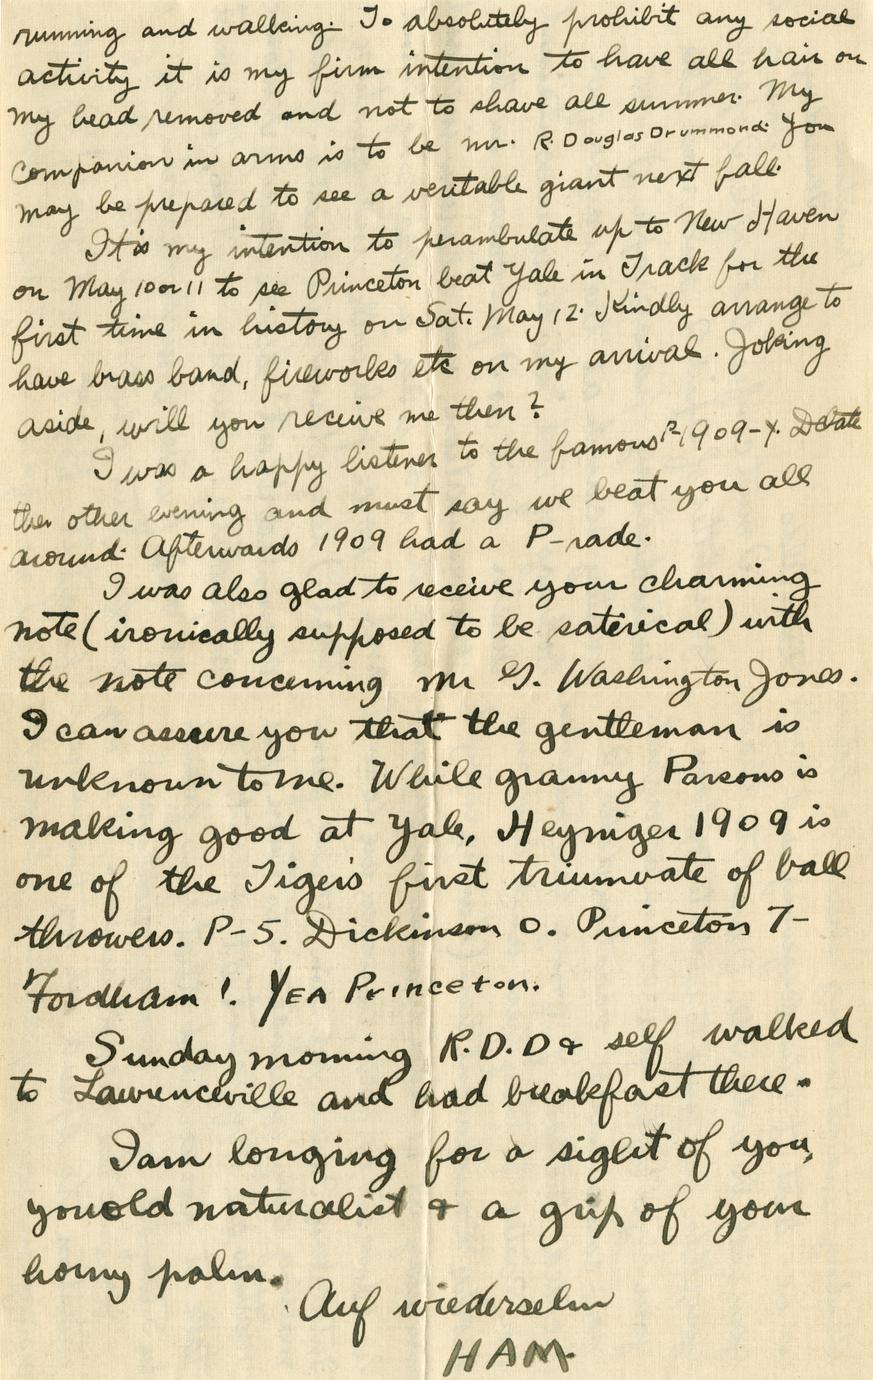 running and walking. To absolutely prohibit any social
activity it is my firm intention to have all hair on
my head removed and not to shave all summer. My
companion in arms is to be mr. R. Douglas Drummond. You
may be prepared to see a veritable giant next fall.
It is my intention to perambulate up to New Haven
on May 10 or 11 to see Princeton beat Yale in Track for the
first time in history on Sat. May 12. Kindly arrange to
have brass band, fireworks etc on my arrival. Joking
aside, will you receive me then?
I was a happy listener to the famous P-1909-Y. Debate
the other evening and must say we beat you all
around. Afterwards 1909 had a P-rade.
I was also glad to receive your charming
note (ironically supposed to be saterical) with
the note concerning Mr G. Washington Jones.
I can assure you that the gentleman is
unknown to me. While granny Parsons is
making good at Yale, Heyniger 1909 is
one of the Tigers first triumvate of ball
throwers. P-5. Dickinson 0. Princeton 7-
Fordham 1. YEA Princeton.
Sunday morning R.D.D & self walked
to Lawrenceville and had breakfast there.
I am longing for a sight of you,
you old naturalist & a grip of your
horny palm.
Auf wiedersehn
HAM.